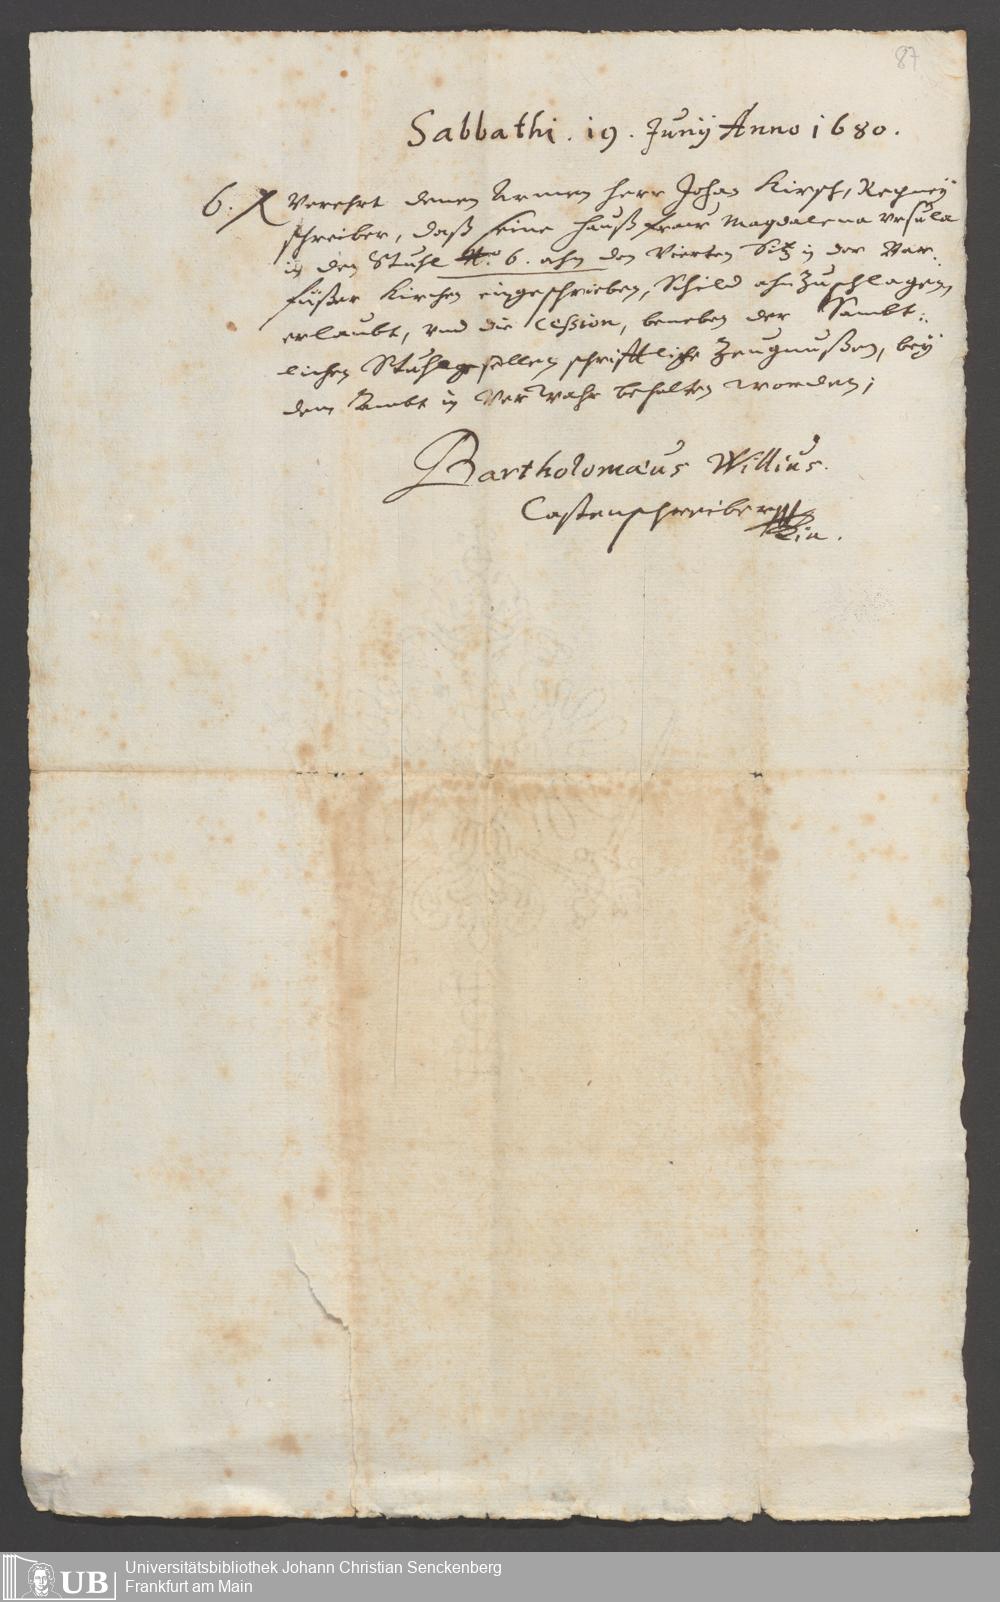 87
Sabbathi. 19. Junÿ Anno 1680.
6. Verehrt denen Armen Herr Johan Kirsch, Rechneÿ
schreiber, daß seine Haußfraw Magdalena Ursula
in den Stuhl No. 6. ahn den Vierten Sitz in der Bar:
füßer Kirchen eingeschrieben, Schild ahnzuschlagen,
erlaubt, und die Cession, beneben der Sambt:
lichen Stuhlgesellen schrifftliche Zeugnußen, beÿ
dem Ambt in Verwahr behalten worden;
Bartholomæus Willius.
Castenschreiber
Universitätsbibliothek Johann Christian Senckenberg
UB Frankfurt am Main